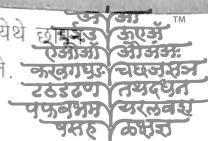 अ आ ™
येथे छापून
इ ई उ ऊ ए ॲ
ऐ ओ औ औ अं अः
ने.
क ख ग घ ङ च छ ज झ ञ
ट ठ ड ढ ण त थ द ध न
प फ ब भ म य र ल व श
ष स ह ळ क्ष ज्ञ